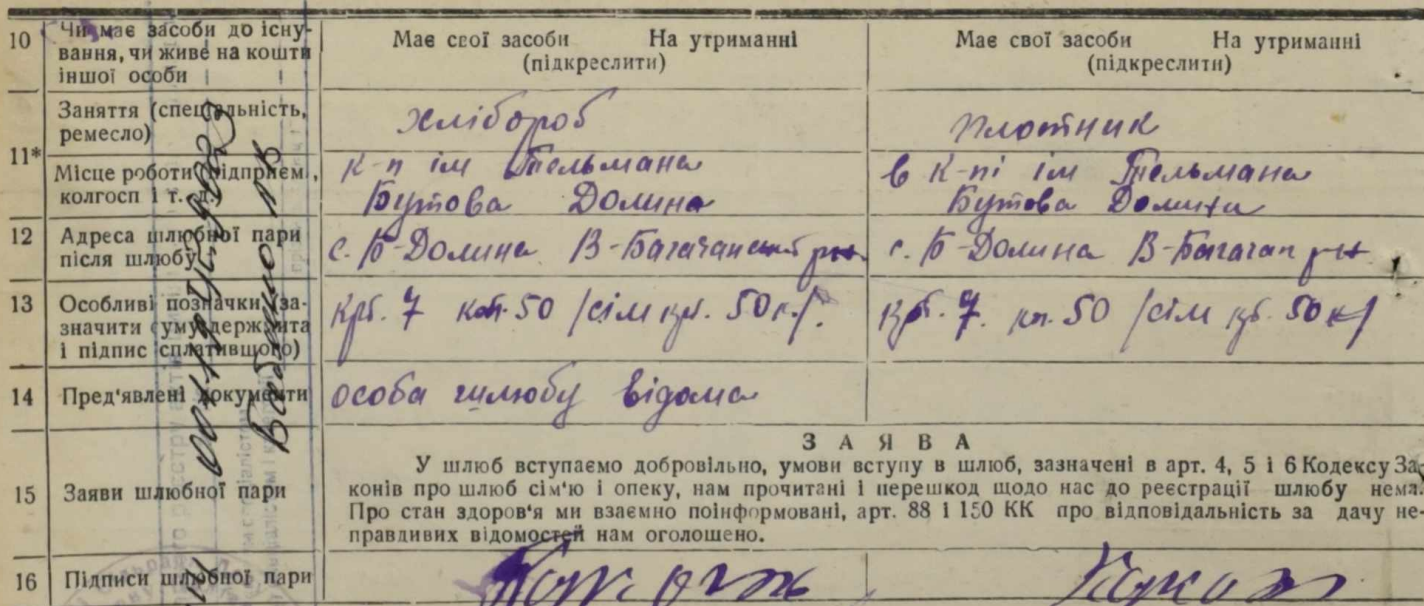 10 Чи має засоби до існу-
вання, чи живе на кошти
іншої особи
Має свої засоби На утриманні
(підкреслити)
Має свої засоби На утриманні
(підкреслити)
11*
Заняття (спеціальність,
ремесло)
хлібороб
плотник
Місце роботи підприєм.,
колгосп і т. д.
к-п ім Тельмана
Бутова Долина
в к-пі ім Тельмана
Бутова Долина
12 Адреса шлюбної пари
після шлюбу
с. Б-Долина В-Багачан
с. Б-Долина В-Багачан
13 Особливі позначки (за-
значити суму держмита
і підпис сплатившого)
крб. 7 коп. 50 /сім крб. 50 к/.
крб. 7. коп. 50 /сім крб. 50 к/
14 Пред'явлені документи
особа шлюбу відома
15 Заяви шлюбної пари
ЗАЯВА
У шлюб вступаємо добровільно, умови вступу в шлюб, зазначені в арт. 4, 5 і 6 Кодексу За-
конів про шлюб сім'ю і опеку, нам прочитані і перешкод щодо нас до реєстрації шлюбу нема.
Про стан здоров'я ми взаємно поінформовані, арт. 88 і 150 КК про відповідальність за дачу не-
правдивих відомостей нам оголошено.
16 Підписи шлюбної пари